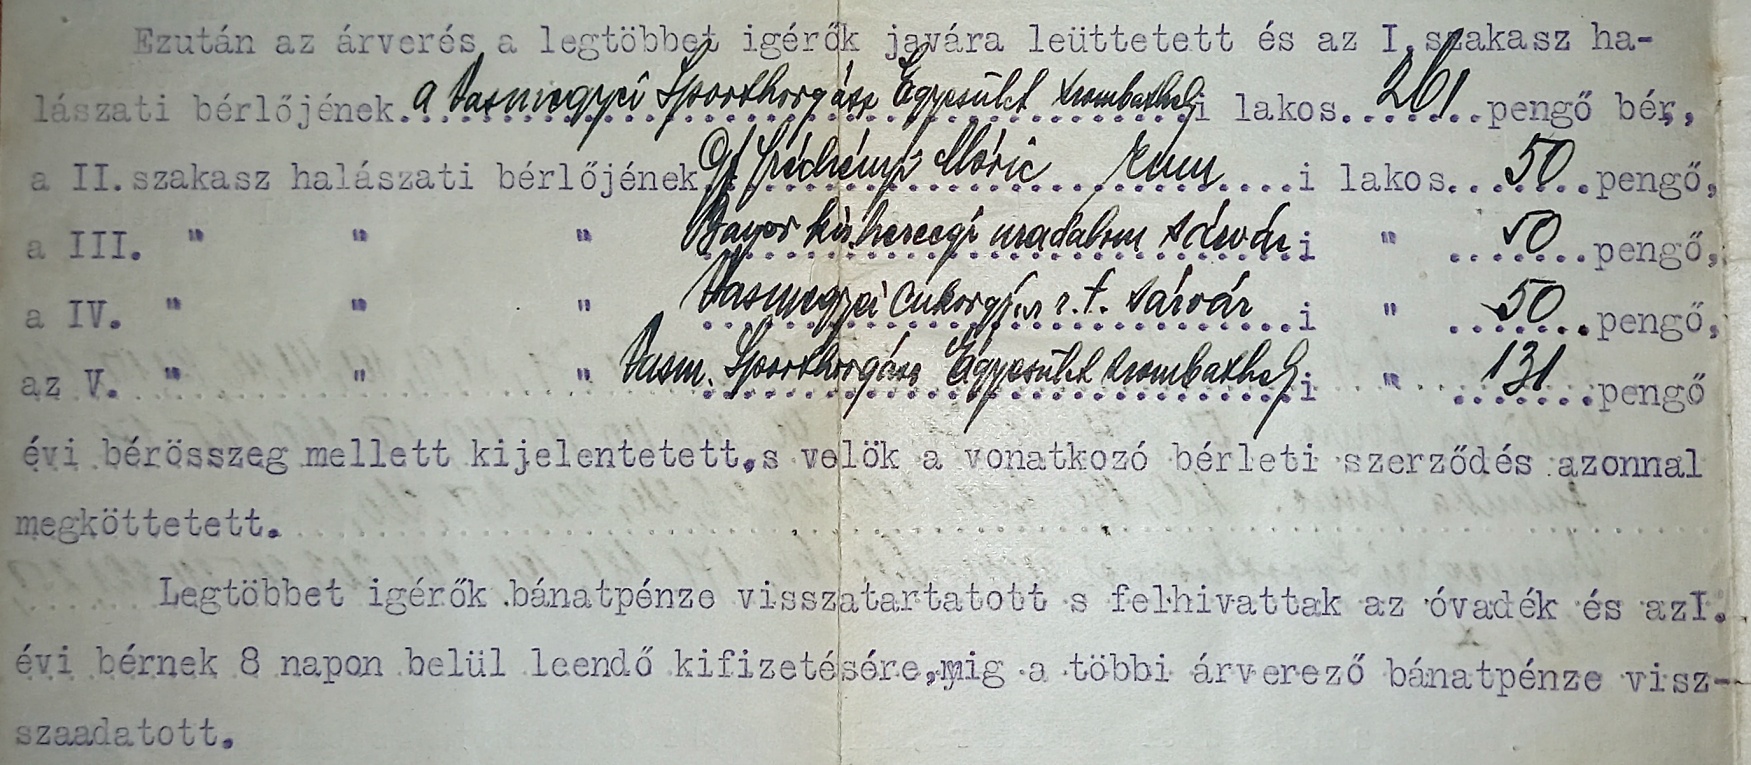 Ezután az árverés a legtöbbet igérők javára leüttetett és az I. szakasz ha-
lászati bérlőjének a Vasmegyei Sporthorgász Egyesület szombathelyi lakos 261 pengő bér,
a II. szakasz halászati bérlőjének Gf Széchényi Móric rumi lakos 50 pengő,
a III. " " " Bayor kir. hercegi uradalom sárvári " 50 pengő,
a IV. " " " Vasmegyei Cukorgyár r.t. sárvári " 50 pengő,
az V. " " " Vasm. Sporthorgász Egyesület szombathelyi " 131 pengő
évi bérösszeg mellett kijelentetett, s velök a vonatkozó bérleti szerződés azonnal
megköttetett.
Legtöbbet igérők bánatpénze visszatartatott s felhivattak az óvadék és az I.
évi bérnek 8 napon belül leendő kifizetésére, mig a többi árverező bánatpénze visz-
szaadatott.